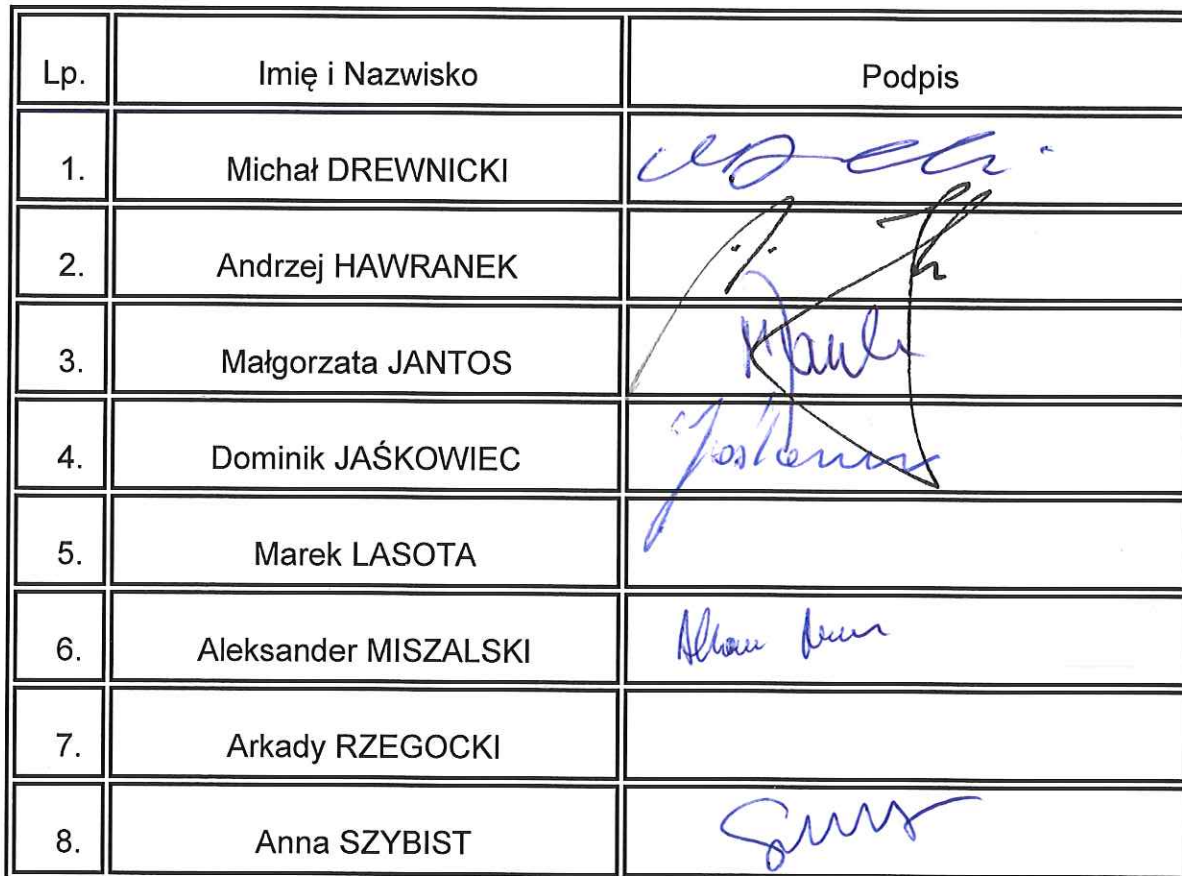 Lp. Imię i Nazwisko Podpis
1. Michał DREWNICKI
2. Andrzej HAWRANEK
3. Małgorzata JANTOS
4. Dominik JAŚKOWIEC
5. Marek LASOTA
6. Aleksander MISZALSKI
7. Arkady RZEGOCKI
8. Anna SZYBIST